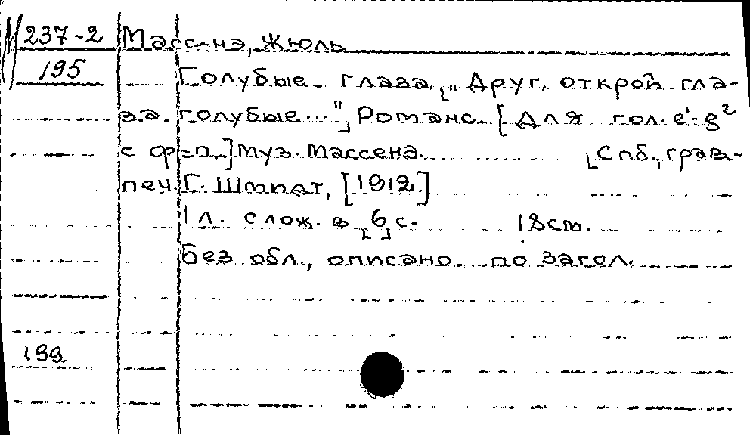 237-2 Массена, Жюль
195 Голубые глаза. [„Друг, открой гла-
за голубые..."] Романс. [Для гол. e¹-g²
с ф-п.] Муз. Массена. [Спб., грав.
печ. Г. Шмидт, [1912]
1 л. слож. в [6] с. 18 см.
Без обл., описано по загол.
199